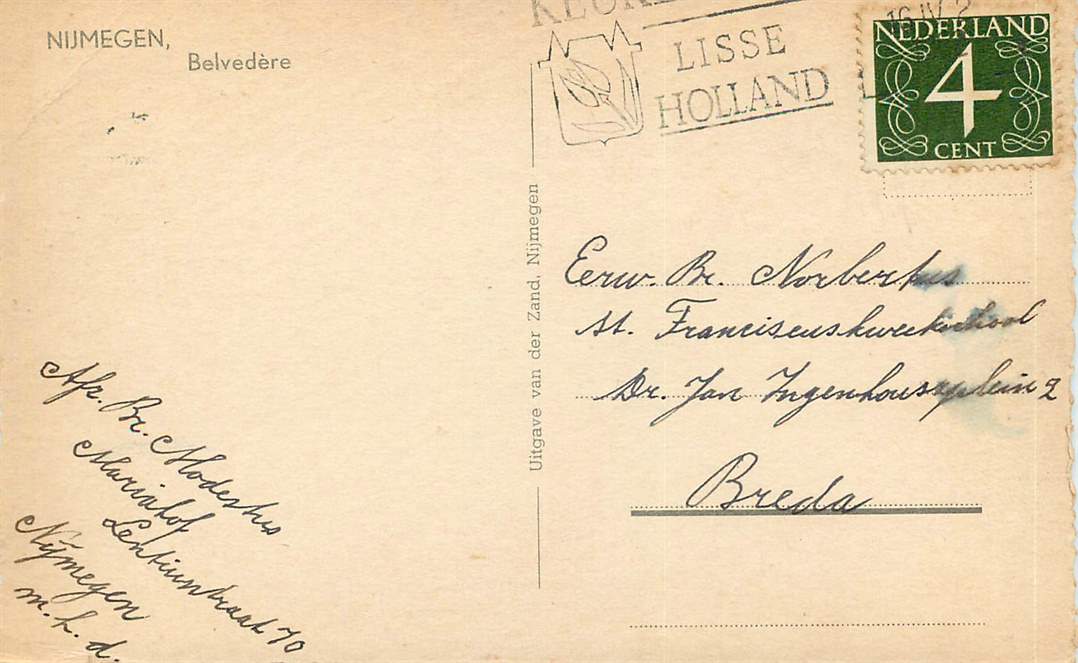 NIJMEGEN,
Belvedère
LISSE
HOLLAND
16 IV
NEDERLAND
4
CENT
Uitgave van der Zand, Nijmegen
Eerw. Br. Norbertus
St. Franciscuskweekschool
Dr. Jan Ingenhouszplein 2
Breda
Afz. Br. Modestus
Mariahof
Nijmegen
m. h. d.